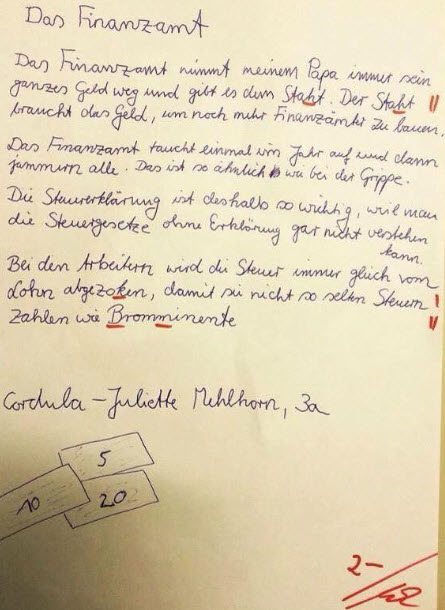 Das Finanzamt
Das Finanzamt nimmt meinem Papa immer sein
ganzes Geld weg und gibt es dem Staht. Der Staht
braucht das Geld, um noch mehr Finanzämter zu bauen.
Das Finanzamt taucht einmal im Jahr auf und dann
jammern alle. Das ist so ähnlich wie bei der Grippe.
Die Steuererklärung ist deshalb so wichtig, weil man
die Steuergesetze ohne Erklärung gar nicht verstehen
kann.
Bei den Arbeitern wird die Steuer immer gleich vom
Lohn abgezoken, damit sie nicht so selten Steuern
Zahlen wie Bromminente
Cordula-Juliette Mehlhorn, 3a
5
10 20
2-